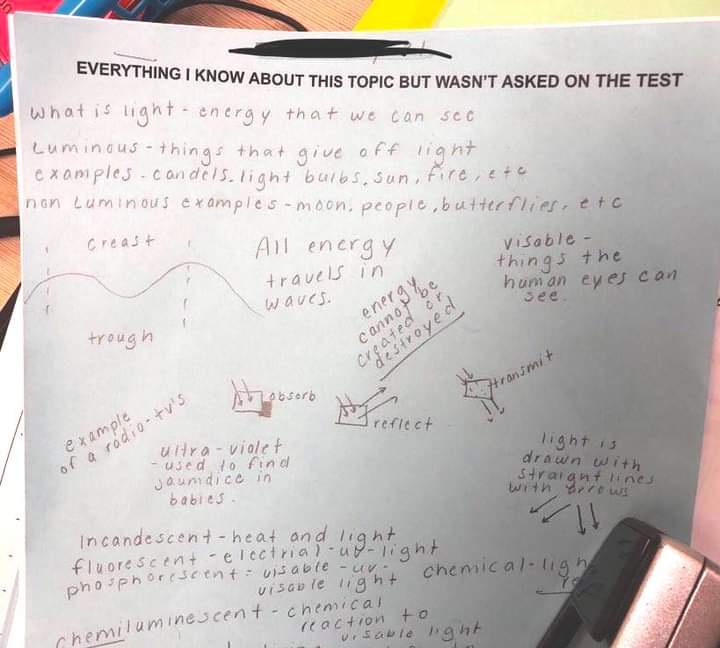 EVERYTHING I KNOW ABOUT THIS TOPIC BUT WASN'T ASKED ON THE TEST
what is light - energy that we can see
Luminous - things that give off light
examples - candels. light bulbs, sun, fire, etc
non Luminous examples - moon, people, butterflies, etc
creast
trough
All energy
travels in
waves.
visable -
things the
human eyes can
see.
energy
cannot be
created or
destroyed
absorb
reflect
transmit
example
of a radio - tv's
ultra - violet
- used to find
jaumdice in
babies.
light is
drawn with
straight lines
with arrows
Incandescent - heat and light
fluorescent - electrial - uv - light
phosphorescent = visable - uv -
visable light
chemical - ligh
chemiluminescent - chemical
reaction to
visable light